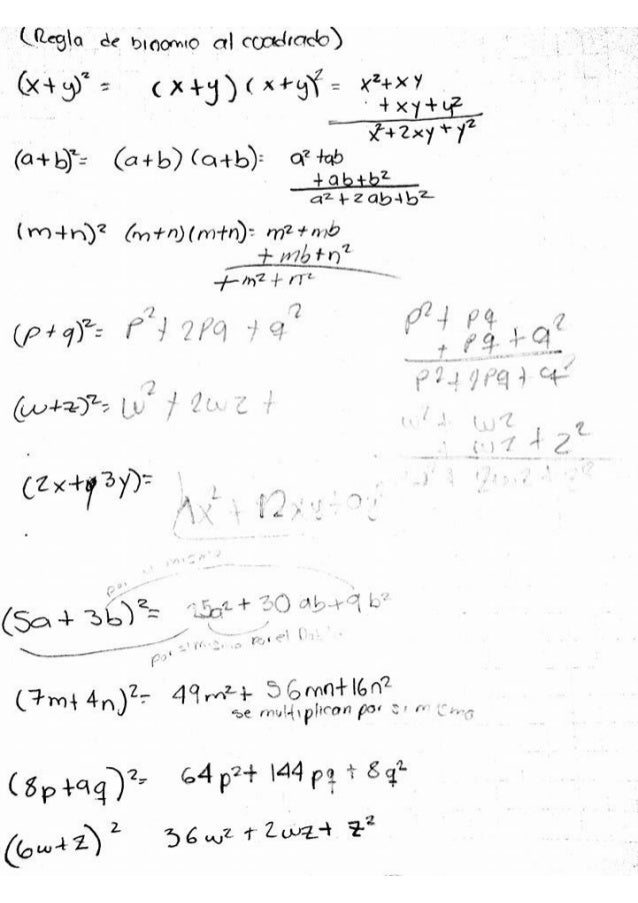 (Regla de binomio al cuadrado)
(x+y)² = (x+y)(x+y)² = x²+xy
+xy+y²
x²+2xy+y²
(a+b)²= (a+b)(a+b): a²+ab
+ab+b²
a²+2ab+b²
(m+n)² (m+n)(m+n)= m²+mb
+mb+n²
+m²+n²
(p+q)²= p²+2pq+q²
p²+pq
+pq+q²
p²+2pq+q²
(w+z)²= w²+2wz+
w²+wz
+wz+z²
(2x+y3y)= 4x²+12xy+9
por mismo
(5a+3b)²= 25a²+30ab+9b²
por si mismo por el
(7m+4n)²= 49m²+56mn+16n²
se multiplican por si mismo
(8p+9q)²= 64p²+144pq+8q²
(6w+z)² 36w²+2wz+z²